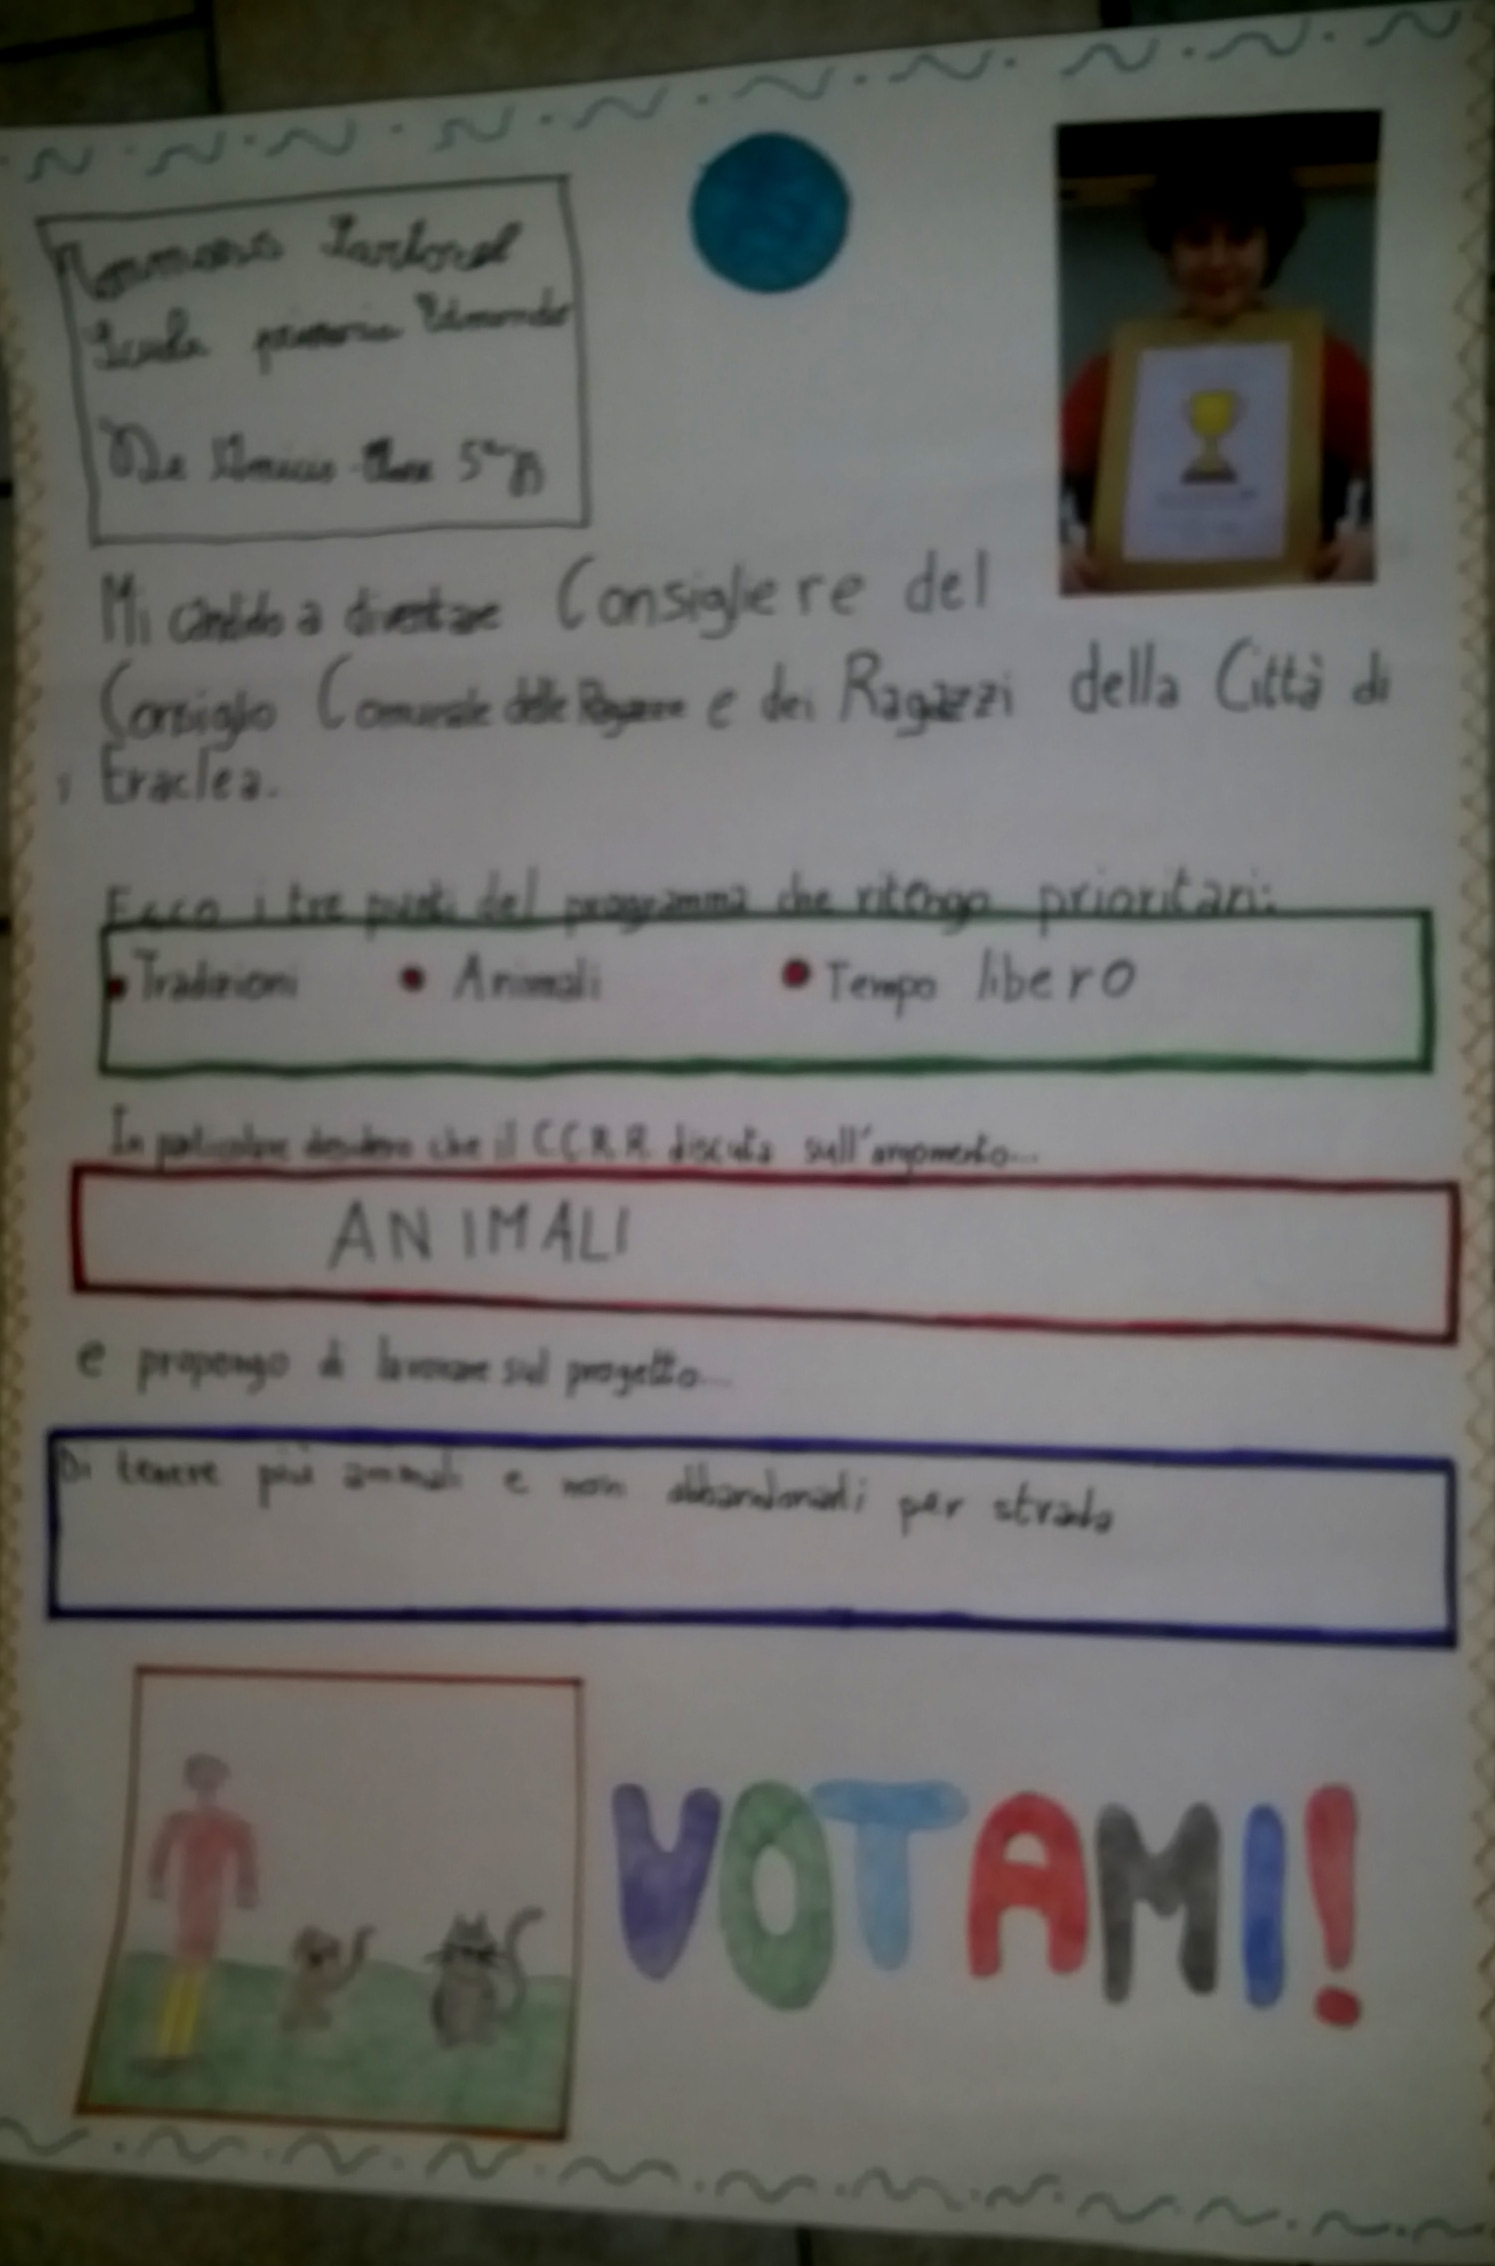 Tommaso
Scuola primaria Edmondo
De Amicis Classe 5^a B
Mi candido a diventare Consigliere del
Consiglio Comunale delle Ragazze e dei Ragazzi della Città di
Eraclea.
Ecco i tre punti del programma che ritengo prioritari:
• Tradizioni • Animali • Tempo libero
In particolare desidero che il CCRR discuta sull'argomento...
ANIMALI
e propongo di lavorare sul progetto...
Di tenere più animali e non abbandonarli per strada
VOTAMI!